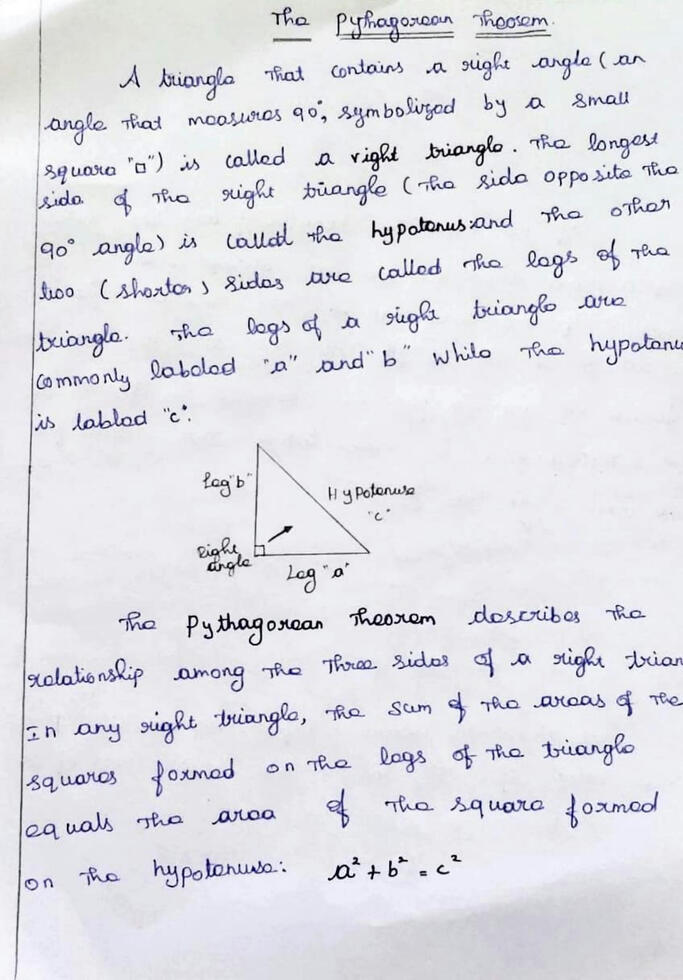 The Pythagorean Theorem.
A triangle that contains a right angle (an
angle that measures 90°, symbolized by a small
square "□") is called a right triangle. The longest
side of the right triangle (the side opposite the
90° angle) is called the hypotenus and the other
two (shorter) sides are called the legs of the
triangle. The legs of a right triangle are
commonly labeled "a" and "b" while the hypotenu
is labled "c".
Leg "b"
Hypotenuse
"c"
Right
angle
Leg "a"
The Pythagorean Theorem describes the
relationship among the three sides of a right trian
In any right triangle, the sum of the areas of the
squares formed on the legs of the triangle
equals the area of the square formed
on the hypotenuse: a² + b² = c²